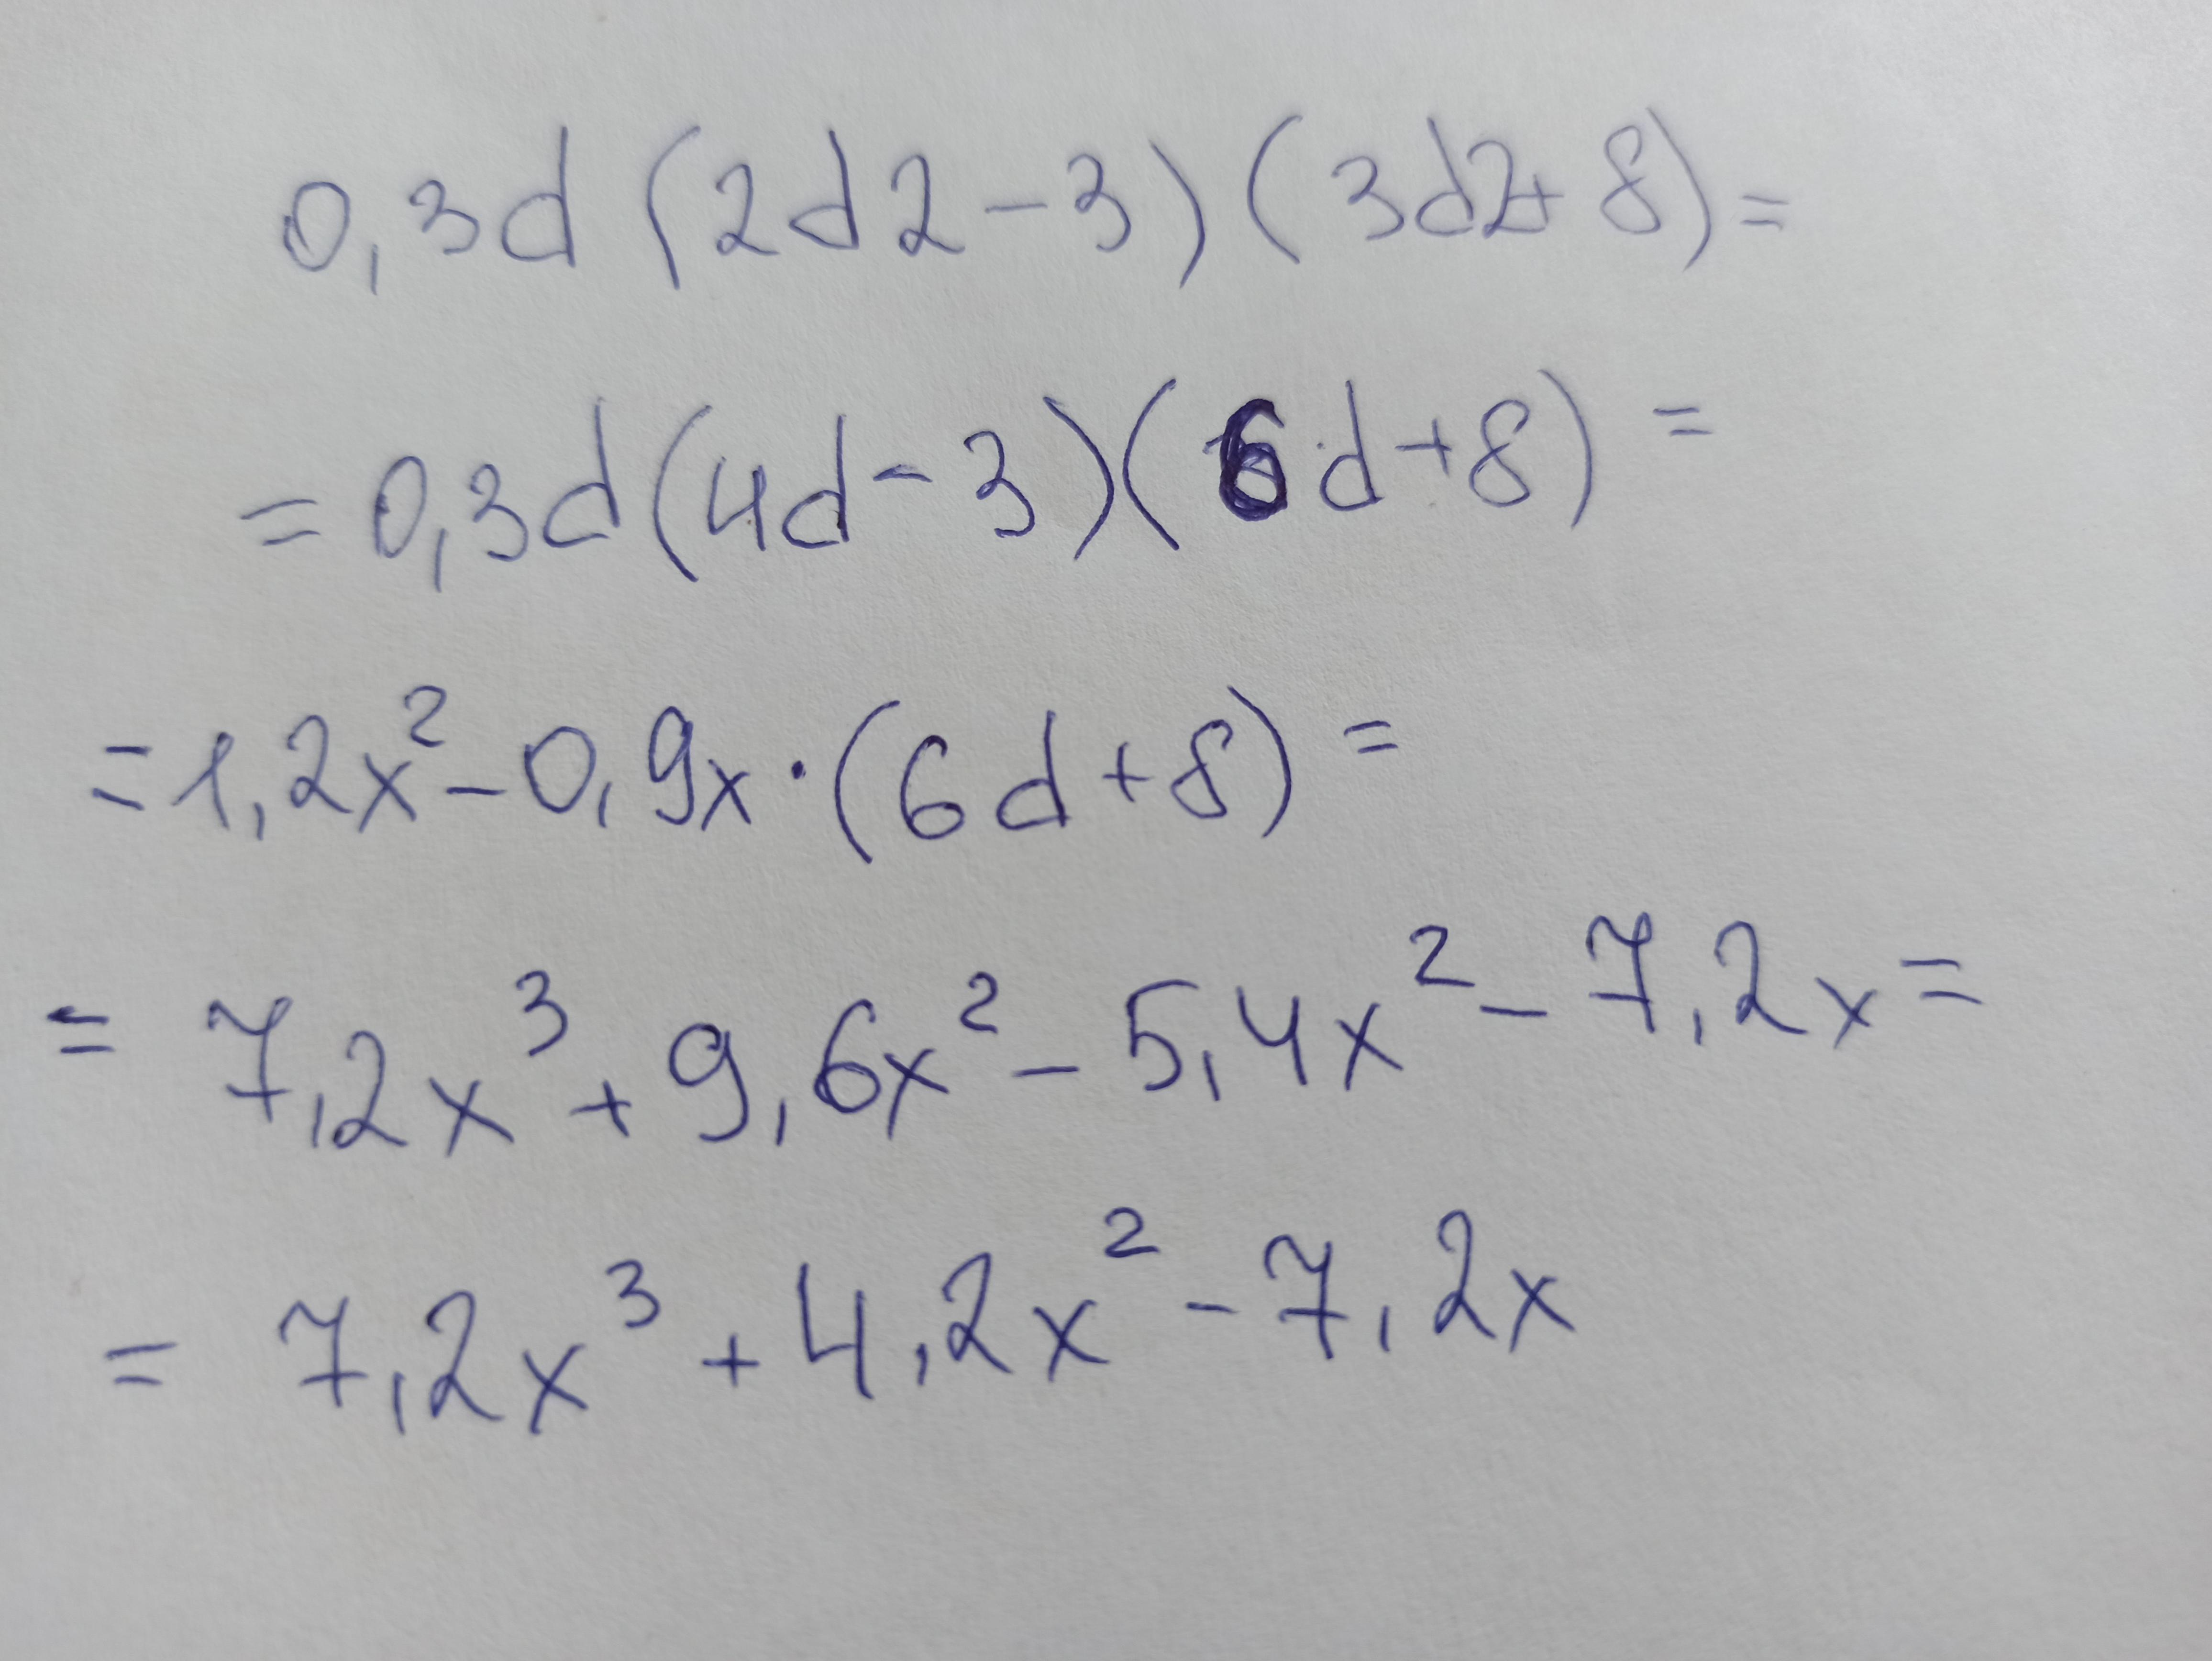 0,3d (2d2-3) (3d2+8)=
= 0,3d(4d-3)(6d+8) =
=1,2x²-0,9x·(6d+8) =
= 7,2x³+9,6x²-5,4x²-7,2x=
= 7,2x³+4,2x²-7,2x